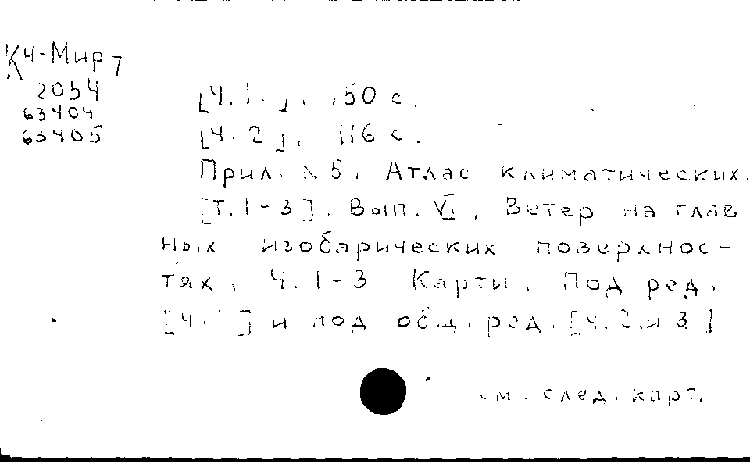 К4-Мир 7
2054
63404
63405
[Ч. 1.]. 150 с.
[Ч. 2]. 116 с.
Прил. N 5. Атлас климатических
[Т. 1-3]. Вып. VI. Ветер на глав
ных изобарических поверхнос-
тях. Ч. 1-3 Карты. Под ред.
[Ч. 1] и под общ. ред. [Ч. 2 и 3]
см. след. карт.